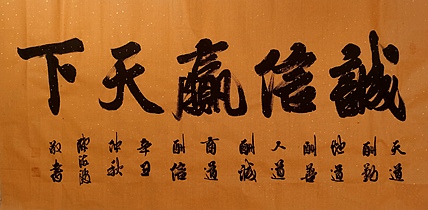 誠信贏天下
天道
酬勤
地道
酬善
人道
酬誠
商道
酬信
辛丑
仲秋
敬書